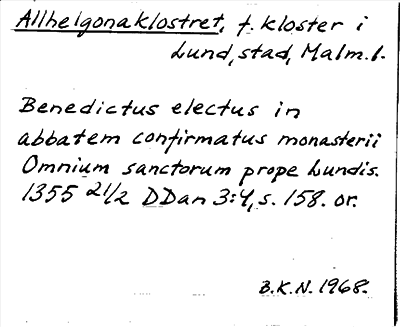 Allhelgonaklostret, f. kloster i
Lund, stad, Malm. l.
Benedictus electus in
abbatem confirmatus monasterii
Omnium sanctorum prope Lundis.
1355 21/2 DDan 3:4, s. 158. or.
B.K.N. 1968.